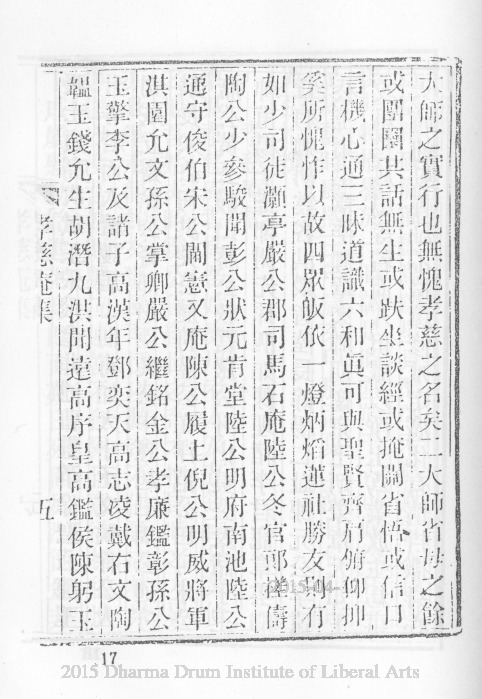 大師之實行也無愧孝慈之名矣二大師省母之餘
或團圞共話無生或趺坐談經或掩關省悟或信口
言機心通三昧道識六和眞可與聖賢齊肩俯仰抑
奚所愧怍以故四眾皈依一燈炳熖蓮社勝友則有
如少司徒灝亭嚴公郡司馬石庵陸公冬官鄖
陶公少參駿聞彭公狀元肯堂陸公明府南池陸公
通守俊伯宋公閫憲又庵陳公履土倪公明威將軍
淇園允文孫公掌卿嚴公繼銘金公孝廉鑑彰孫公
玉擎李公及諸子高漢年鄧奕天高志凌戴石文陶
韞玉錢允生胡潛九洪聞遠高序皇高鑑侯陳躬玉
孝慈庵集
五
2015-04-
17
2015 Dharma Drum Institute of Liberal Arts